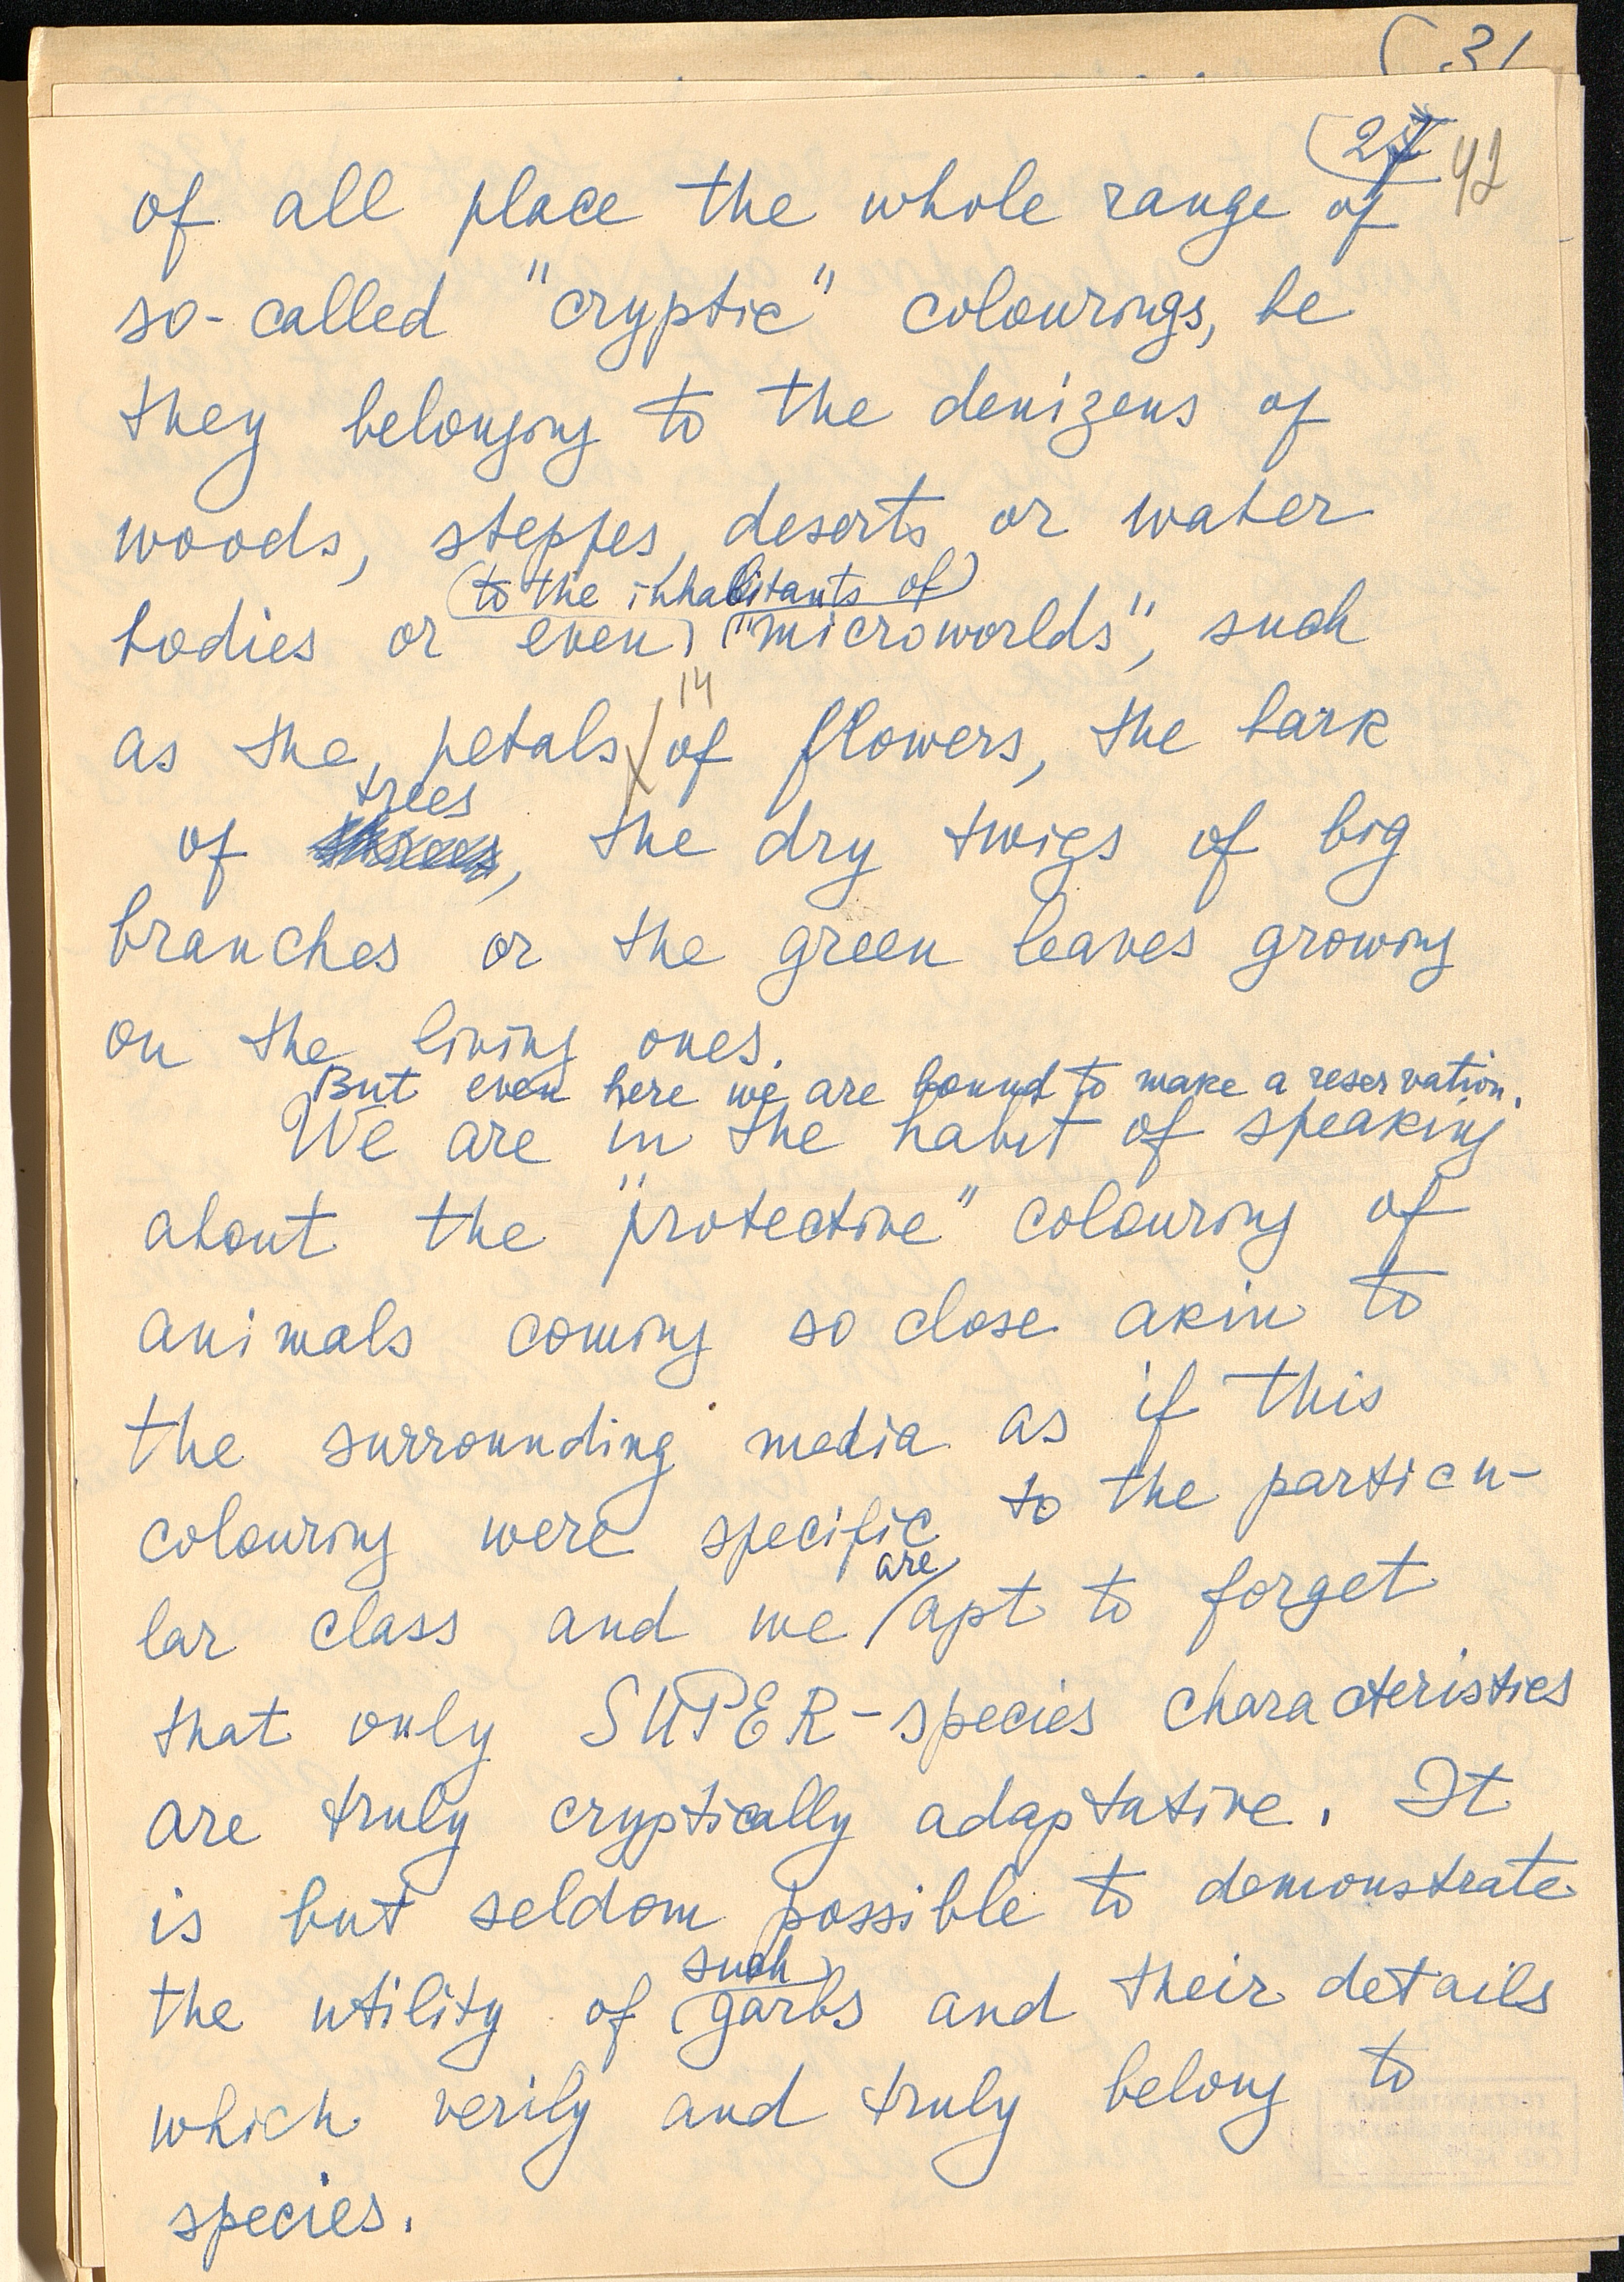 (31
42
of all place the whole range of
so-called "cryptic" colourings, be
they belonging to the denizens of
woods, steppes, deserts or water
(to the inhabitants of)
bodies or even "microworlds", such
14
as the petals of flowers, the bark
trees
of , the dry twigs of big
branches or the green leaves growing
on the living ones.
But even here we are bound to make a reservation.
We are in the habit of speaking
about the "protective" colouring of
animals coming so close akin to
the surrounding media as if this
colouring were specific to the particu-
are
lar class and we apt to forget
that only SUPER-species characteristics
are truly cryptically adaptative. It
is but seldom possible to demonstrate
such
the utility of garbs and their details
which verily and truly belong to
species.